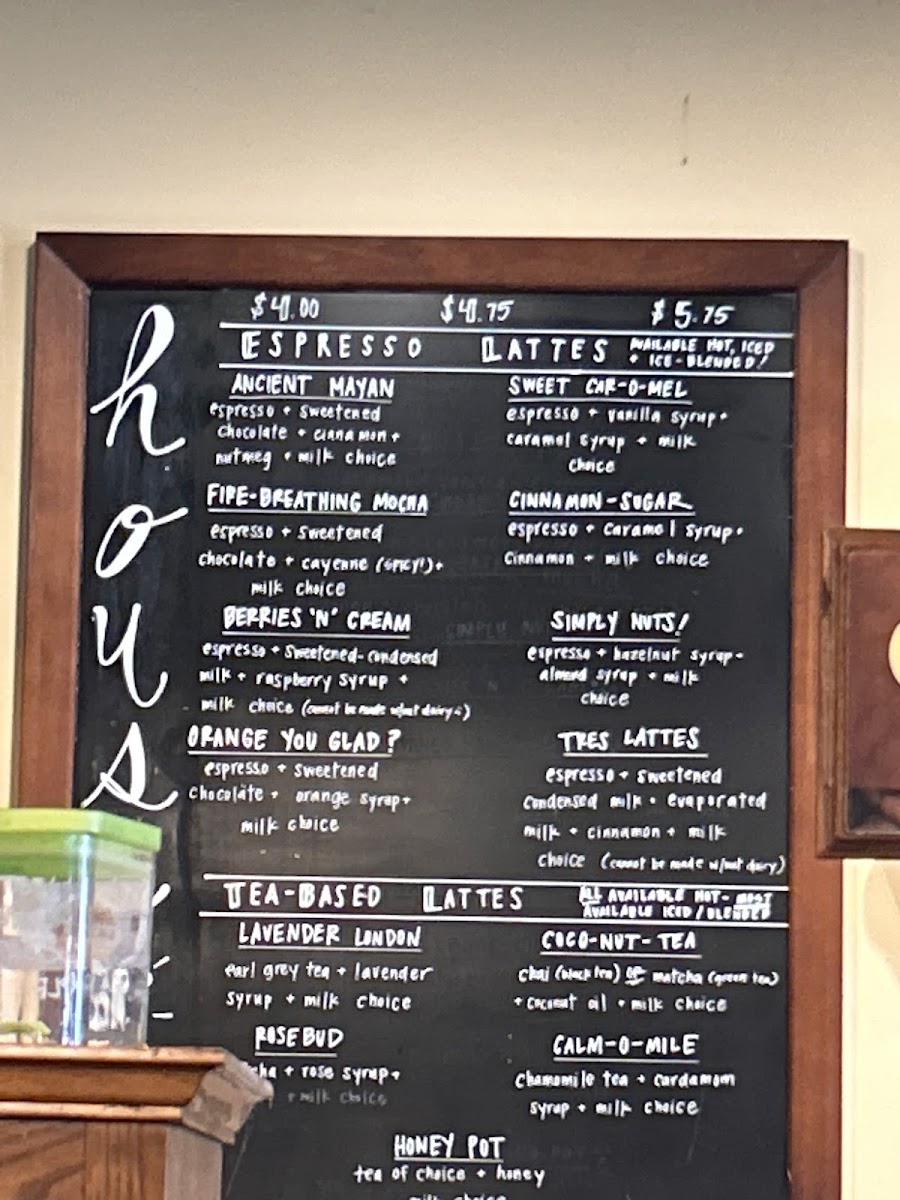 hous
$4.00 $4.75 $5.75
ESPRESSO LATTES
AVAILABLE HOT, ICED
+ ICE-BLENDED!
ANCIENT MAYAN
espresso + sweetened
chocolate + cinnamon +
nutmeg + milk choice
SWEET CAR-O-MEL
espresso + vanilla syrup +
caramel syrup + milk
choice
FIRE-BREATHING MOCHA
espresso + sweetened
chocolate + cayenne (SPICY!) +
milk choice
CINNAMON-SUGAR
espresso + caramel syrup +
cinnamon + milk choice
BERRIES 'N' CREAM
espresso + sweetened-condensed
milk + raspberry syrup +
milk choice (cannot be made w/out dairy)
SIMPLY NUTS!
espresso + hazelnut syrup +
almond syrup + milk
choice
ORANGE YOU GLAD?
espresso + sweetened
chocolate + orange syrup +
milk choice
TRES LATTES
espresso + sweetened
condensed milk + evaporated
milk + cinnamon + milk
choice (cannot be made w/out dairy)
TEA-BASED LATTES
ALL AVAILABLE HOT - MOST
AVAILABLE ICED/BLENDED
LAVENDER LONDON
earl grey tea + lavender
syrup + milk choice
COCO-NUT-TEA
chai (black tea) OR matcha (green tea)
+ coconut oil + milk choice
ROSEBUD
cha + rose syrup +
+ milk choice
CALM-O-MILE
chamomile tea + cardamom
syrup + milk choice
HONEY POT
tea of choice + honey
milk choice